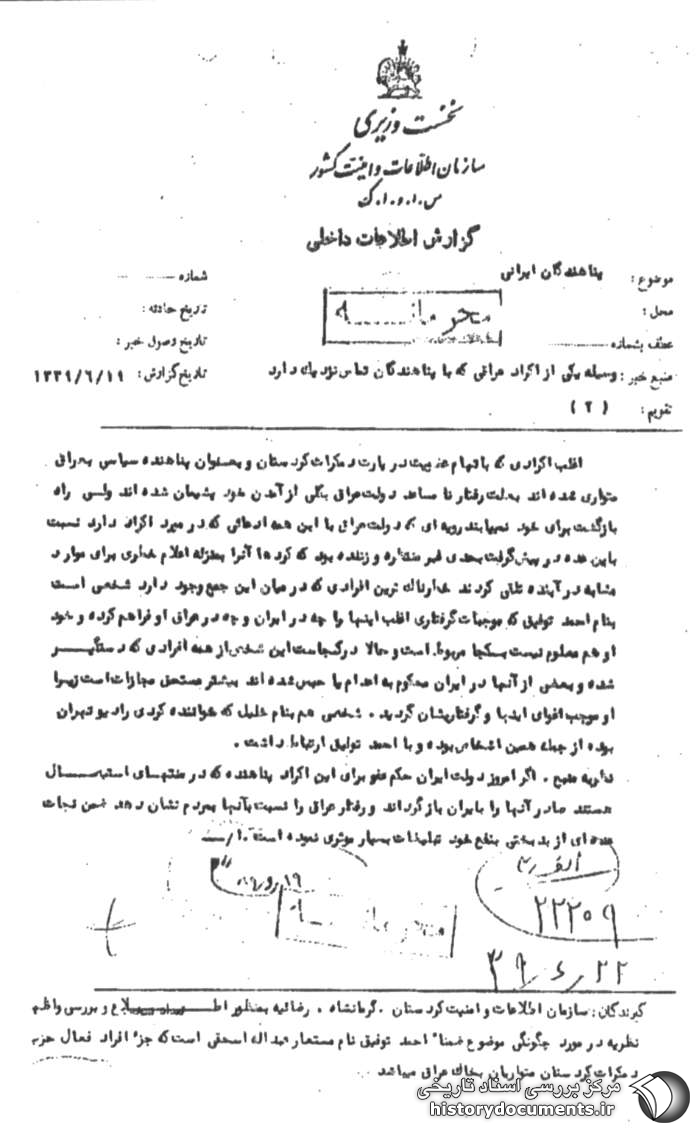 نخست وزیری
سازمان اطلاعات و امنیت کشور
س.ا.و.ا.ک
گزارش اطلاعات داخلی
موضوع : پناهندگان ایرانی
شماره
محل :
محرمانه
تاریخ حادثه :
عطف بشماره
تاریخ وصول خبر :
منبع خبر : وسیله یکی از اکراد عراقی که با پناهندگان تماس نزدیک دارد
تاریخ گزارش : ۱۳۳۹/۶/۱۹
تقویم : (۲)
اغلب اکرادی که باتهام عضویت در پارت دمکرات کردستان و بعنوان پناهنده سیاسی بعراق
متواری شده اند بعلت رفتار نا مساعد دولت عراق بکلی از آمدن خود پشیمان شده اند ولی راه
بازگشت برای خود نمییابند رویه ای که دولت عراق با این همه ادعائی که در مورد اکراد دارد نسبت
باین عده در پیش گرفت بحدی غیر منتظره و زننده بود که کردها آنرا بمنزله اعلام خطری برای موارد
مشابه در آینده تلقی کردند خطرناک ترین افرادی که در میان این جمع وجود دارد شخصی است
بنام احمد توفیق که موجبات گرفتاری اغلب اینها را چه در ایران و چه در عراق او فراهم کرده و خود
او هم معلوم نیست بکجا مربوط است و حالا در کجاست این شخص از همه افرادی که دستگیر
شده و بعضی از آنها در ایران محکوم به اعدام یا حبس شده اند بیشتر مستحق مجازات است زیرا
او موجب اغوای اینها و گرفتاریشان گردید . شخصی هم بنام خلیل که خواننده کردی رادیو تهران
بوده از جمله همین اشخاص بوده و با احمد توفیق ارتباط داشت .
نظریه منبع . اگر امروز دولت ایران حکم عفو برای این اکراد پناهنده که در منتهای استیصال
هستند صادر آنها را بایران بازگرداند و رفتار عراق را نسبت بآنها بمردم نشان دهد ضمن نجات
عده ای از بدبختی بنفع خود تبلیغات بسیار موثری نموده است .
محرمانه
۲۲۲۰۹
۳۹/۶/۲۲
گیرندگان : سازمان اطلاعات و امنیت کردستان . کرمانشاه . رضائیه بمنظور اطلاع و بررسی و اعلام
نظریه در مورد چگونگی موضوع ضمناً احمد توفیق نام مستعار عبداله اسحقی است که جزء افراد فعال حزب
دمکرات کردستان متواریان بخاک عراق میباشد
مرکز بررسی اسناد تاریخی
historydocuments.ir